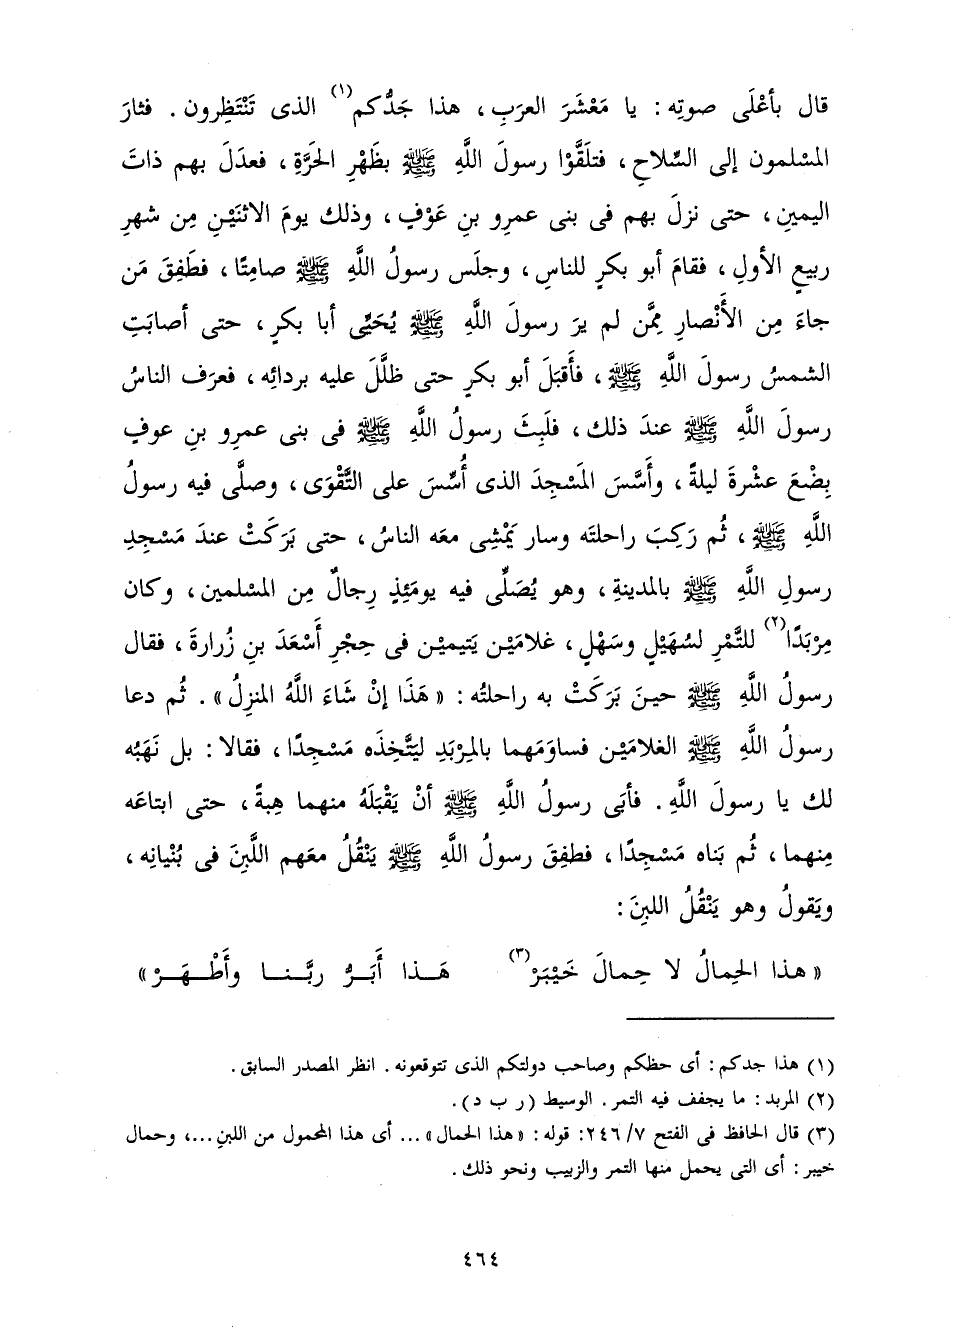 قال بأعْلَى صوتِه : يا مَعْشَرَ العربِ ، هذا جَدُّكم(١) الذى تَنْتَظِرون . فثارَ
المسْلمون إلى السِّلاحِ ، فتلَقَّوْا رسولَ اللَّهِ ﷺ بظَهْرِ الحَرَّةِ ، فعدَلَ بهم ذاتَ
اليمينِ ، حتى نزلَ بهم فى بنى عمرِو بنِ عَوْفٍ ، وذلك يومَ الاثنَيْنِ مِن شهرِ
ربيعٍ الأولِ ، فقامَ أبو بكرٍ للناسِ ، وجلَس رسولُ اللَّهِ ﷺ صامِتًا ، فطَفِقَ مَن
جاءَ مِن الأَنْصارِ مِمَّن لم يرَ رسولَ اللَّهِ ﷺ يُحَيِّى أبا بكرٍ ، حتى أصابَتِ
الشمسُ رسولَ اللَّهِ ﷺ ، فأَقبَلَ أبو بكرٍ حتى ظلَّلَ عليه بردائِه ، فعرَف الناسُ
رسولَ اللَّهِ ﷺ عندَ ذلك ، فلَبِثَ رسولُ اللَّهِ ﷺ فى بنى عمرِو بنِ عوفٍ
بِضْعَ عشْرةَ ليلةً ، وأَسَّسَ المَسْجِدَ الذى أُسِّسَ على التَّقْوَى ، وصلَّى فيه رسولُ
اللَّهِ ﷺ ، ثُم رَكِبَ راحلتَه وسار يَمْشِى معَه الناسُ ، حتى بَركَتْ عندَ مَسْجِدِ
رسولِ اللَّهِ ﷺ بالمدينةِ ، وهو يُصَلِّى فيه يومَئِذٍ رِجالٌ مِن المسْلمين ، وكان
مِرْبَدًا(٢) للتَّمْرِ لسُهَيْلٍ وسَهْلٍ ، غلامَيْن يَتيمَيْن فى حِجْرِ أَسْعَدَ بنِ زُرارةَ ، فقال
رسولُ اللَّهِ ﷺ حينَ بَرَكَتْ به راحلتُه : « هَذَا إنْ شَاءَ اللَّهُ المنزِلُ » . ثُم دعا
رسولُ اللَّهِ ﷺ الغلامَيْن فساوَمَهما بالمِرْبَدِ ليَتَّخِذَه مَسْجِدًا ، فقالا : بل نَهَبُه
لك يا رسولَ اللَّهِ . فأبَى رسولُ اللَّهِ ﷺ أنْ يَقْبَلَهُ منهما هِبةً ، حتى ابتاعَه
مِنهما ، ثُم بَناه مَسْجِدًا ، فطفِقَ رسولُ اللَّهِ ﷺ يَنْقُلُ معَهم اللَّبِنَ فى بُنْيانِه ،
ويَقولُ وهو يَنْقُلُ اللبِنَ :
« هذا الحِمالُ لا حِمالَ خَيْبَرْ(٣) هَـذا أَبَرُّ ربَّـنـا وأَطْـهَـرْ »
(١) هذا جدكم : أى حظكم وصاحب دولتكم الذى تتوقعونه . انظر المصدر السابق .
(٢) المربد : ما يجفف فيه التمر . الوسيط ( ر ب د ) .
(٣) قال الحافظ فى الفتح ٧/ ٢٤٦: قوله : « هذا الحمال » ... أى هذا المحمول من اللبن ...، وحمال
خيبر : أى التى يحمل منها التمر والزبيب ونحو ذلك .
٤٦٤